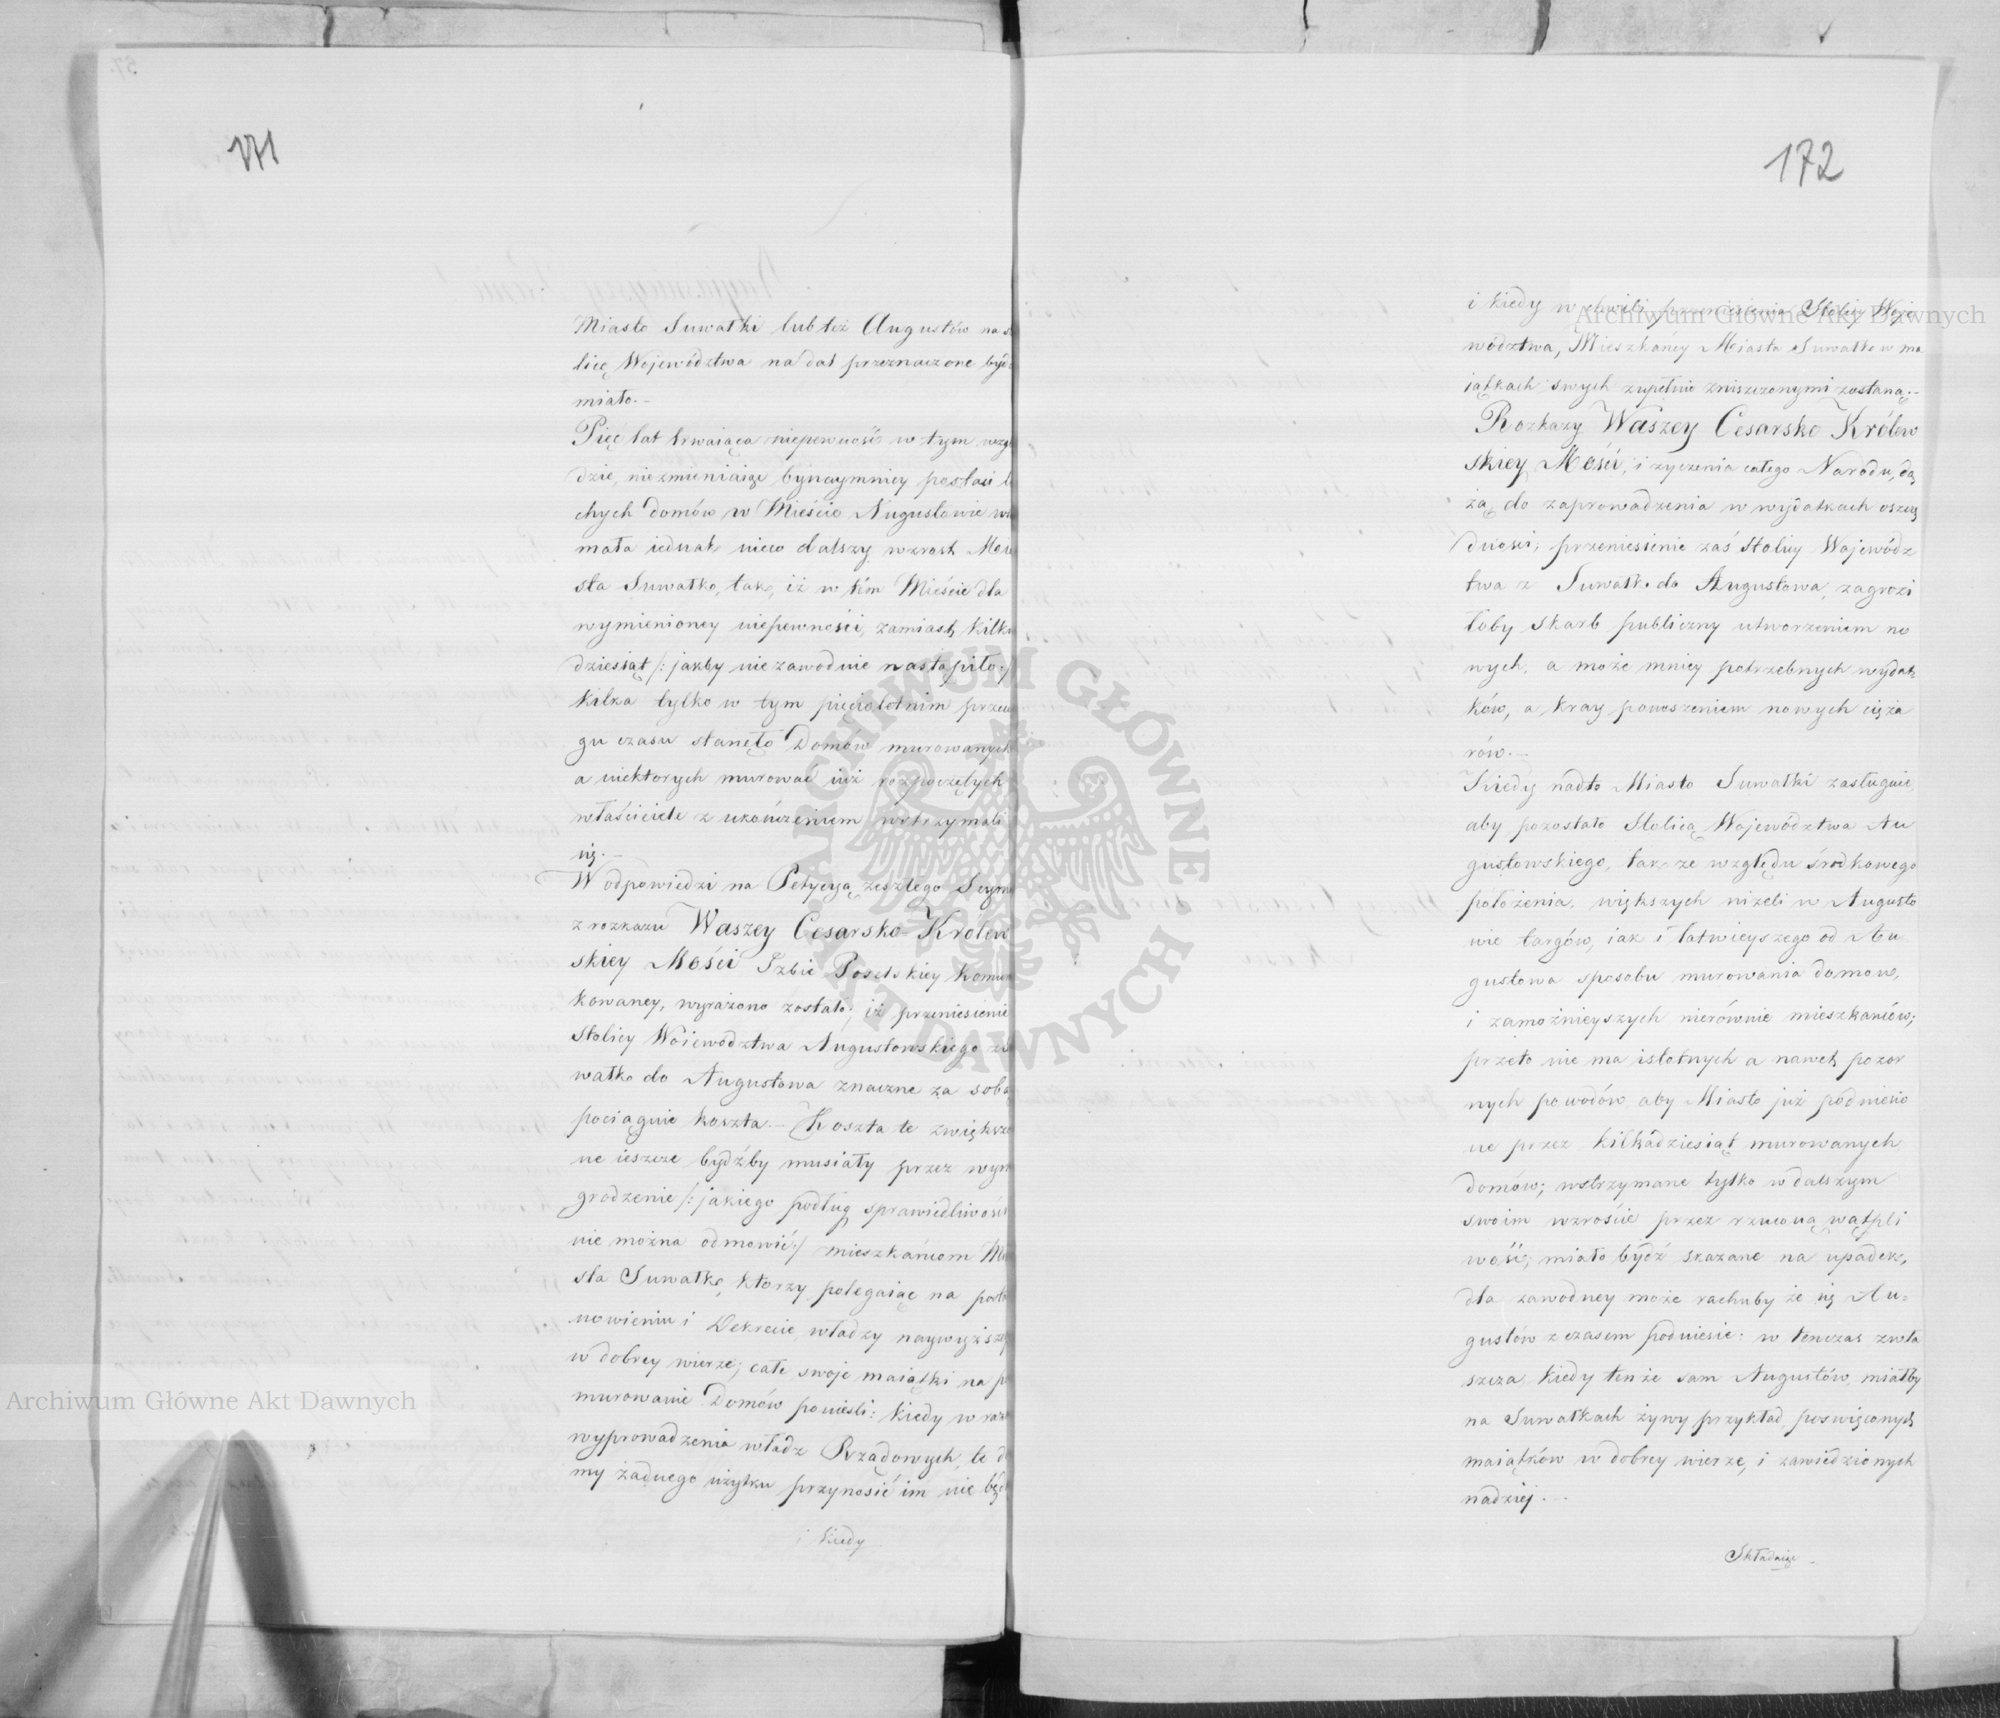 171
Miasto Suwałki lub też Augustów na s
licę Województwa na dal przeznaczone bydź
miało.–
Pięć lat trwaiąca niepewność w tym wzglę
dzie, niezmieniaiąc bynaymniey postaci
chych domów w Mieście Augustowie
mała iednak nieco dalszy wzrost Mia
sta Suwałk, tak, iż w tém Mieście dla
wymienioney niepewności, zamiast kilku
dziesiąt /: jakby niezawodnie nastąpiło :/
kilka tylko w tym pięcioletnim przecią
gu czasu stanęło Domów murowanych
a niektorych murować iuż rozpoczętych
właściciele z ukończeniem wstrzymali
się.–
W odpowiedzi na Petycyą zeszłego Seymu
z rozkazu Waszey Cesarsko-Krolew
skiey Mości Izbie Poselskiey komuni
kowaney, wyrażono zostało; iż przeniesienie
Stolicy Woiewództwa Augustowskiego z Su
wałk do Augustowa znaczne za sobą
pociągnie koszta.– Koszta te zwiększo
ne ieszcze bydźby musiały przez wyna
grodzenie /: jakiego podług sprawiedliwości
nie można odmowić :/ mieszkańcom Mia
sta Suwałk, ktorzy polegaiąc na posta
nowieniu i Dekrecie władzy naywyższey
w dobrey wierze; całe swoje maiątki na
murowanie Domów ponieśli: kiedy w razie
wyprowadzenia władz Rządowych, te do
my żadnego użytku przynosić im nie będą
i kiedy
172
i kiedy w chwili przeniesienia Stolicy Woje
wództwa, Mieszkańcy Miasta Suwałk w ma
iątkach swych zupełnie zniszczonymi zostaną.–
Rozkazy Waszey Cesarsko Królew
skiey Mości, i życzenia całego Narodu, dą
żą do zaprowadzenia w wydatkach oszczę
dności; przeniesienie zaś Stolicy Wojewódz
twa z Suwałk do Augustowa, zagrozi
łoby skarb publiczny utworzeniem no
wych, a może mniey potrzebnych wydat
ków, a kray ponoszeniem nowych cięża
rów.–
Kiedy nadto Miasto Suwałki zasługuie,
aby pozostało Stolicą Województwa Au
gustowskiego, tak ze względu środkowego
położenia, większych niżeli w Augusto
wie targów, iak i łatwieyszego od Au
gustowa sposobu murowania domow,
i zamożnieyszych nierównie mieszkańców;
przeto nie ma istotnych a nawet pozor
nych powodów, aby Miasto już podniesio
ne przez kilkadziesiąt murowanych
domów; wstrzymane tylko w dalszym
swoim wzroście przez rzuconą wątpli
wość; miało bydź skazane na upadek,
dla zawodney może rachuby że się Au=
gustów z czasem podniesie: w tenczas zwła
szcza, kiedy tenże sam Augustów, miałby
na Suwałkach żywy przykład, poswięconych
maiątków w dobrey wierze, i zawiedzionych
nadziej...
Składaiąc
Archiwum Główne Akt Dawnych
Archiwum Główne Akt Dawnych
ARCHIWUM GŁÓWNE AKT DAWNYCH